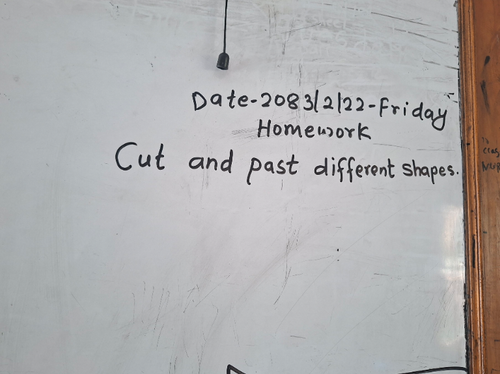 Date-2083/2/22-Friday
Homework
Cut and past different shapes.